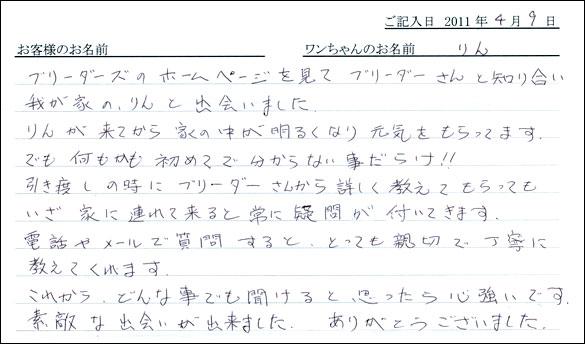 ご記入日 2011年4月9日
お客様のお名前 ワンちゃんのお名前 りん
ブリーダーズのホームページを見てブリーダーさんと知り合い
我が家の、りんと出会いました。
りんが来てから家の中が明るくなり元気をもらってます。
でも何もかも初めてで分からない事だらけ!!
引き度しの時にブリーダーさんから詳しく教えてもらっても
いざ家に連れて来ると常に疑問が付いてきます。
電話やメールで質問すると、とっても親切で丁寧に
教えてくれます。
これから、どんな事でも聞けると思ったら心強いです。
素敵な出会いが出来ました。 ありがとうございました。